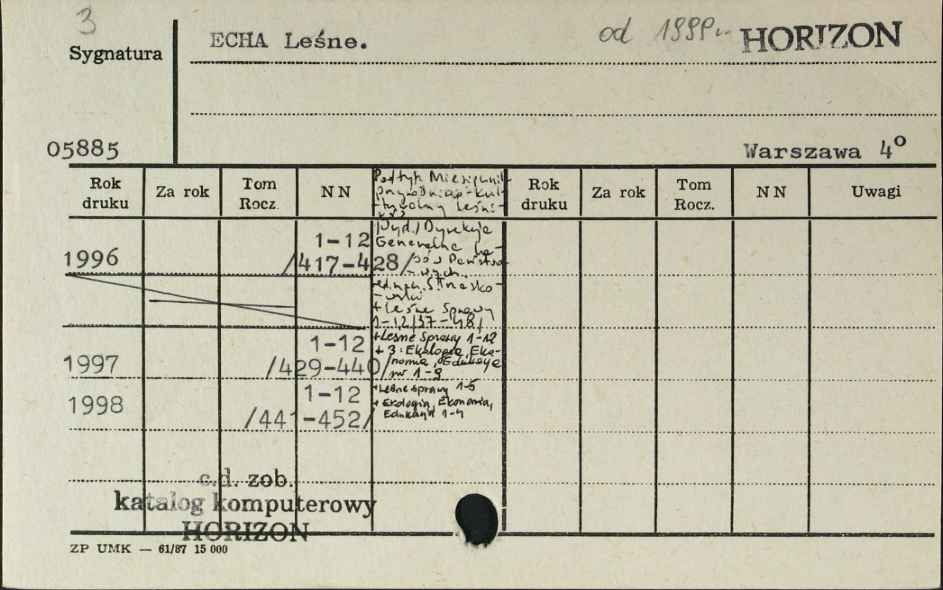 3
Sygnatura
ECHA Leśne.
od 1999r. HORIZON
05885
Warszawa 4º
Rok druku
Za rok
Tom Rocz.
N N
Podtyt. Miesięcznik
Rok druku
Za rok
Tom Rocz.
N N
Uwagi
1996
1-12
/417-428/
/Wyd./ Dyrekcja
Generalna
+ Leśne Sprawy
1-12/37-48/
1997
1-12
/429-440/
+ Leśne Sprawy 1-12
+ 3: Ekologia, Eko-
nomia, Edukacja
nr 1-9
1998
1-12
/441-452/
+ Leśne Sprawy 1-5
+ Ekologia, Ekonomia,
Edukacja 1-4
c.d. zob.
katalog komputerowy
HORIZON
ZP UMK — 61/87 15 000